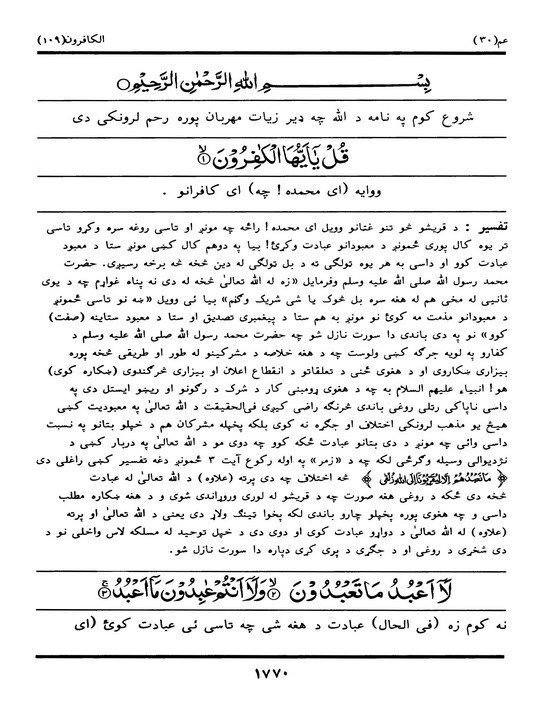 عم(۳۰) الكافرون(۱۰۹)
بِسْــــــمِ اللّٰهِ الرَّحْمٰنِ الرَّحِيْمِ
شروع كوم په نامه د الله چه ډير زيات مهربان پوره رحم لرونكى دى
قُلْ يٰۤاَيُّهَا الْكٰفِرُوْنَ ۙ﴿۱﴾
ووايه (اى محمده! چه) اى كافرانو .
تفسير : د قريشو څو تنو غټانو وويل اى محمده! راځه چه مونږ او تاسى روغه سره وكړو تاسى
تر يوه كال پورى ځمونږ د معبودانو عبادت وكړئ! بيا په دوهم كال كښى مونږ ستا د معبود
عبادت كوو او داسى به هر يوه ټولګى ته د بل ټولګى له دين څخه څه برخه رسيږى. حضرت
محمد رسول الله صلى الله عليه وسلم وفرمايل «زه له الله تعالىٰ څخه له دى نه پناه غواړم چه د يوى
ثانيى له مخى هم له هغه سره بل څوک يا شى شريک وګڼم» بيا ئى وويل «ښه نو تاسى ځمونږ
د معبودانو مذمت مه كوئ نو مونږ به هم ستا د پيغمبرى تصديق او ستا د معبود ستاينه (صفت)
كوو» نو په دى باندى دا سورت نازل شو چه حضرت محمد رسول الله صلى الله عليه وسلم د
كفارو په لويه جرګه كښى ولوست چه د هغه خلاصه د مشركينو له طور او طريقى څخه پوره
بيزارى ښكاروى او د هغوى ځنى د تعلقاتو د انقطاع اعلان او بيزارى څرګندوى (ښكاره كوى)
هو! انبياء عليهم السلام به چه د هغوى ړومبنى كار د شرک د رګونو او ريښو ايستل دى په
داسى ناپاكى رتلى روغى باندى څرنګه راضى كيږى فى‌الحقيقت د الله تعالىٰ په معبوديت كښى
هيڅ يو مذهب لرونكى اختلاف او جګړه نه كوى بلكه پخپله مشركان هم د خپلو بتانو په نسبت
داسى وائى چه مونږ د دى بتانو عبادت ځكه كوو چه دوى مو د الله تعالىٰ په دربار كښى د
نژديوالى وسيله وګرځى لكه چه د «زمر» په اوله ركوع آيت ۳ ځمونږ دغه تفسير كښى راغلى دى
﴿ مَا نَعْبُدُهُمْ اِلَّا لِيُقَرِّبُوْنَاۤ اِلَى اللّٰهِ زُلْفٰى ﴾ څه اختلاف چه دى پرته (علاوه) د الله تعالىٰ له عبادت
څخه دى ځكه د روغى هغه صورت چه د قريشو له لورى وړوړاندى شوى و د هغه ښكاره مطلب
داسى و چه هغوى پوره پخپلو چارو باندى لكه پخوا ټينګ ولاړ دى يعنى د الله تعالىٰ او پرته
(علاوه) له الله تعالىٰ د دواړو عبادت كوى او دوى دى د خپل توحيد له مسلكه لاس واخلى نو د
دى شخړى د روغى او د جګړى د پرى كړى دپاره دا سورت نازل شو.
لَاۤ اَعْبُدُ مَا تَعْبُدُوْنَ ۙ﴿۲﴾ وَلَاۤ اَنْتُمْ عٰبِدُوْنَ مَاۤ اَعْبُدُ ۚ﴿۳﴾
نه كوم زه (فى الحال) عبادت د هغه شى چه تاسى ئى عبادت كوئ (اى
۱۷۷۰